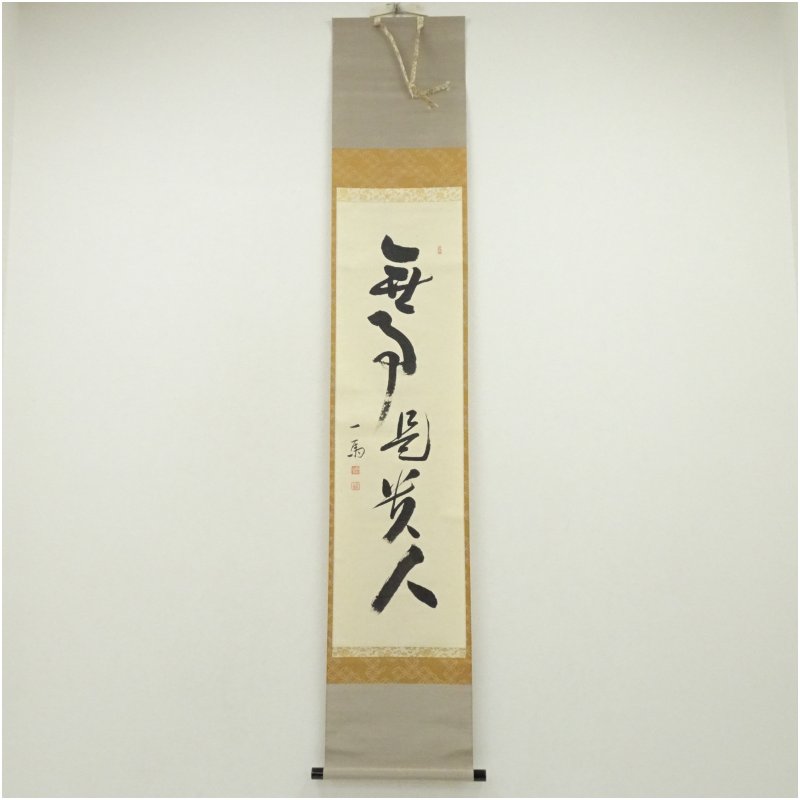 無事是貴人
一馬